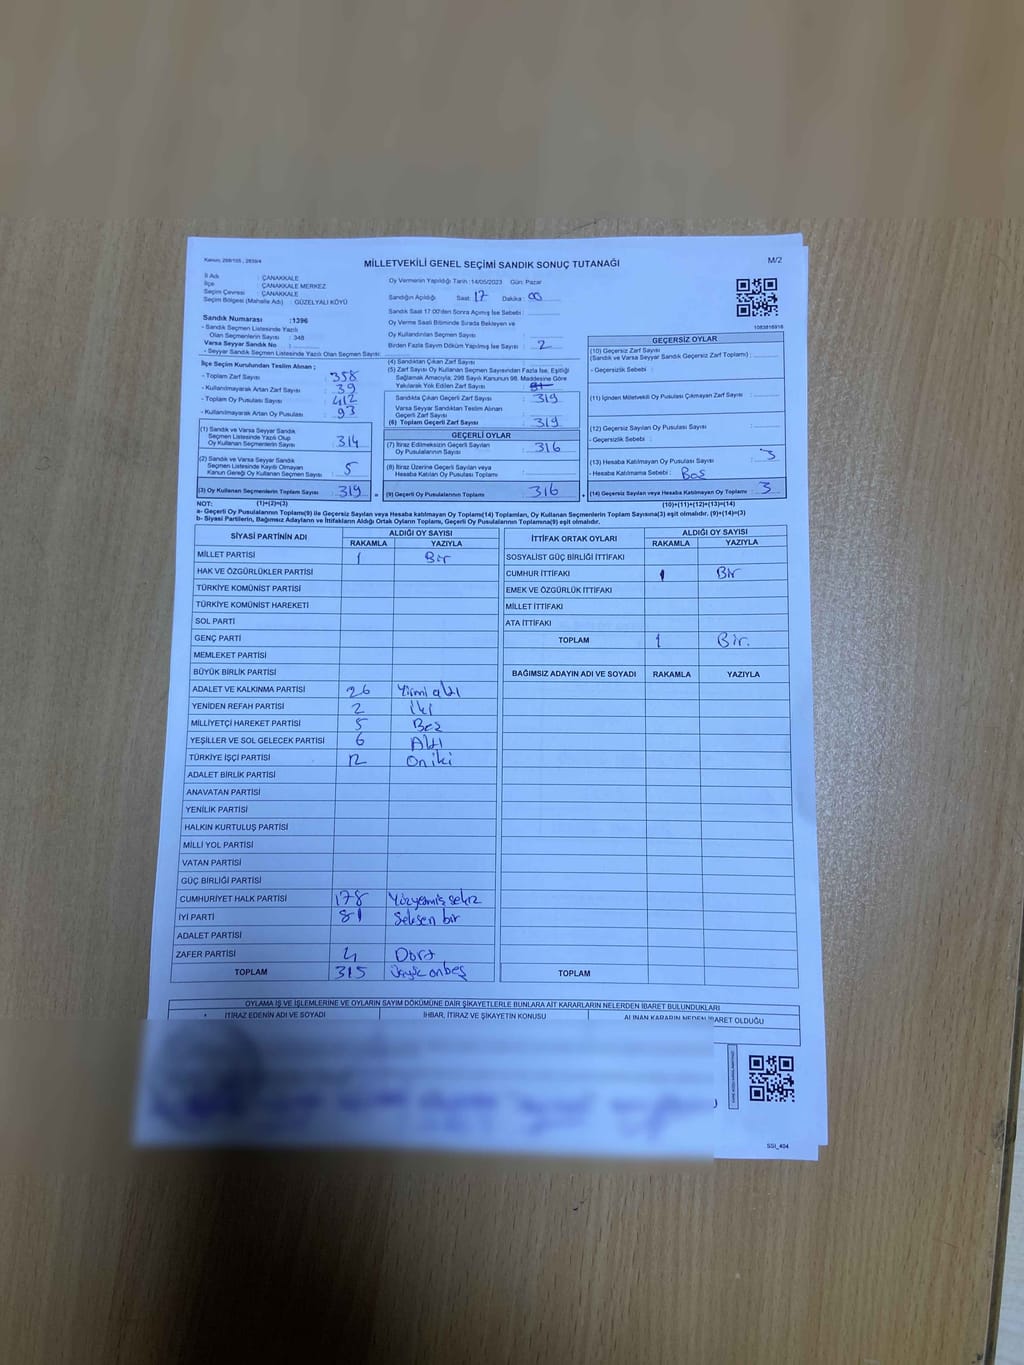 Kanun, 298/105 , 2839/4
MİLLETVEKİLİ GENEL SEÇİMİ SANDIK SONUÇ TUTANAĞI
M/2
İl Adı : ÇANAKKALE
İlçe : ÇANAKKALE MERKEZ
Seçim Çevresi : ÇANAKKALE
Seçim Bölgesi (Mahalle Adı) : GÜZELYALI KÖYÜ
Oy Vermenin Yapıldığı Tarih :14/05/2023 Gün: Pazar
Sandığın Açıldığı Saat: 17 Dakika: 00
Sandık Saat 17:00'den Sonra Açılmış İse Sebebi :
Oy Verme Saati Bitiminde Sırada Bekleyen ve
Oy Kullandırılan Seçmen Sayısı :
Birden Fazla Sayım Döküm Yapılmış İse Sayısı : 2
1083816916
Sandık Numarası :1396
- Sandık Seçmen Listesinde Yazılı
Olan Seçmenlerin Sayısı : 348
Varsa Seyyar Sandık No :
- Seyyar Sandık Seçmen Listesinde Yazılı Olan Seçmen Sayısı:
İlçe Seçim Kurulundan Teslim Alınan ;
- Toplam Zarf Sayısı : 358
- Kullanılmayarak Artan Zarf Sayısı : 39
- Toplam Oy Pusulası Sayısı : 412
- Kullanılmayarak Artan Oy Pusulası : 93
(1) Sandık ve Varsa Seyyar Sandık
Seçmen Listesinde Yazılı Olup
Oy Kullanan Seçmenlerin Sayısı : 314
(2) Sandık ve Varsa Seyyar Sandık
Seçmen Listesinde Kayıtlı Olmayan
Kanun Gereği Oy Kullanan Seçmen Sayısı : 5
(3) Oy Kullanan Seçmenlerin Toplam Sayısı : 319
(1)+(2)=(3)
(4) Sandıktan Çıkan Zarf Sayısı :
(5) Zarf Sayısı Oy Kullanan Seçmen Sayısından Fazla İse, Eşitliği
Sağlamak Amacıyla; 298 Sayılı Kanunun 98. Maddesine Göre
Yakılarak Yok Edilen Zarf Sayısı :
Sandıkta Çıkan Geçerli Zarf Sayısı : 319
Varsa Seyyar Sandıktan Teslim Alınan
Geçerli Zarf Sayısı :
(6) Toplam Geçerli Zarf Sayısı : 319
GEÇERLİ OYLAR
(7) İtiraz Edilmeksizin Geçerli Sayılan
Oy Pusulalarının Sayısı : 316
(8) İtiraz Üzerine Geçerli Sayılan veya
Hesaba Katılan Oy Pusulası Toplamı :
(9) Geçerli Oy Pusulalarının Toplamı : 316
GEÇERSİZ OYLAR
(10) Geçersiz Zarf Sayısı
(Sandık ve Varsa Seyyar Sandık Geçersiz Zarf Toplamı) :
- Geçersizlik Sebebi :
(11) İçinden Milletvekili Oy Pusulası Çıkmayan Zarf Sayısı :
(12) Geçersiz Sayılan Oy Pusulası Sayısı :
- Geçersizlik Sebebi :
(13) Hesaba Katılmayan Oy Pusulası Sayısı : 3
- Hesaba Katılmama Sebebi : Boş
(14) Geçersiz Sayılan veya Hesaba Katılmayan Oy Toplamı : 3
(10)+(11)+(12)+(13)=(14)
NOT:
a- Geçerli Oy Pusulalarının Toplamı(9) ile Geçersiz Sayılan veya Hesaba katılmayan Oy Toplamı(14) Toplamları, Oy Kullanan Seçmenlerin Toplam Sayısına(3) eşit olmalıdır. (9)+(14)=(3)
b- Siyasi Partilerin, Bağımsız Adayların ve İttifakların Aldığı Ortak Oyların Toplamı, Geçerli Oy Pusulalarının Toplamına(9) eşit olmalıdır.
SİYASİ PARTİNİN ADI ALDIĞI OY SAYISI
RAKAMLA YAZIYLA
MİLLET PARTİSİ 1 Bir
HAK VE ÖZGÜRLÜKLER PARTİSİ
TÜRKİYE KOMÜNİST PARTİSİ
TÜRKİYE KOMÜNİST HAREKETİ
SOL PARTİ
GENÇ PARTİ
MEMLEKET PARTİSİ
BÜYÜK BİRLİK PARTİSİ
ADALET VE KALKINMA PARTİSİ 26 Yirmi altı
YENİDEN REFAH PARTİSİ 2 İki
MİLLİYETÇİ HAREKET PARTİSİ 5 Beş
YEŞİLLER VE SOL GELECEK PARTİSİ 6 Altı
TÜRKİYE İŞÇİ PARTİSİ 12 On iki
ADALET BİRLİK PARTİSİ
ANAVATAN PARTİSİ
YENİLİK PARTİSİ
HALKIN KURTULUŞ PARTİSİ
MİLLİ YOL PARTİSİ
VATAN PARTİSİ
GÜÇ BİRLİĞİ PARTİSİ
CUMHURİYET HALK PARTİSİ 178 Yüzyetmiş sekiz
İYİ PARTİ 81 Seksen bir
ADALET PARTİSİ
ZAFER PARTİSİ 4 Dört
TOPLAM 315 Üçyüz onbeş
İTTİFAK ORTAK OYLARI ALDIĞI OY SAYISI
RAKAMLA YAZIYLA
SOSYALİST GÜÇ BİRLİĞİ İTTİFAKI
CUMHUR İTTİFAKI 1 Bir
EMEK VE ÖZGÜRLÜK İTTİFAKI
MİLLET İTTİFAKI
ATA İTTİFAKI
TOPLAM 1 Bir.
BAĞIMSIZ ADAYIN ADI VE SOYADI RAKAMLA YAZIYLA
TOPLAM
OYLAMA İŞ VE İŞLEMLERİNE VE OYLARIN SAYIM DÖKÜMÜNE DAİR ŞİKAYETLERLE BUNLARA AİT KARARLARIN NELERDEN İBARET BULUNDUKLARI
İTİRAZ EDENİN ADI VE SOYADI İHBAR, İTİRAZ VE ŞİKAYETİN KONUSU ALINAN KARARIN NEDEN İBARET OLDUĞU
SSI_404